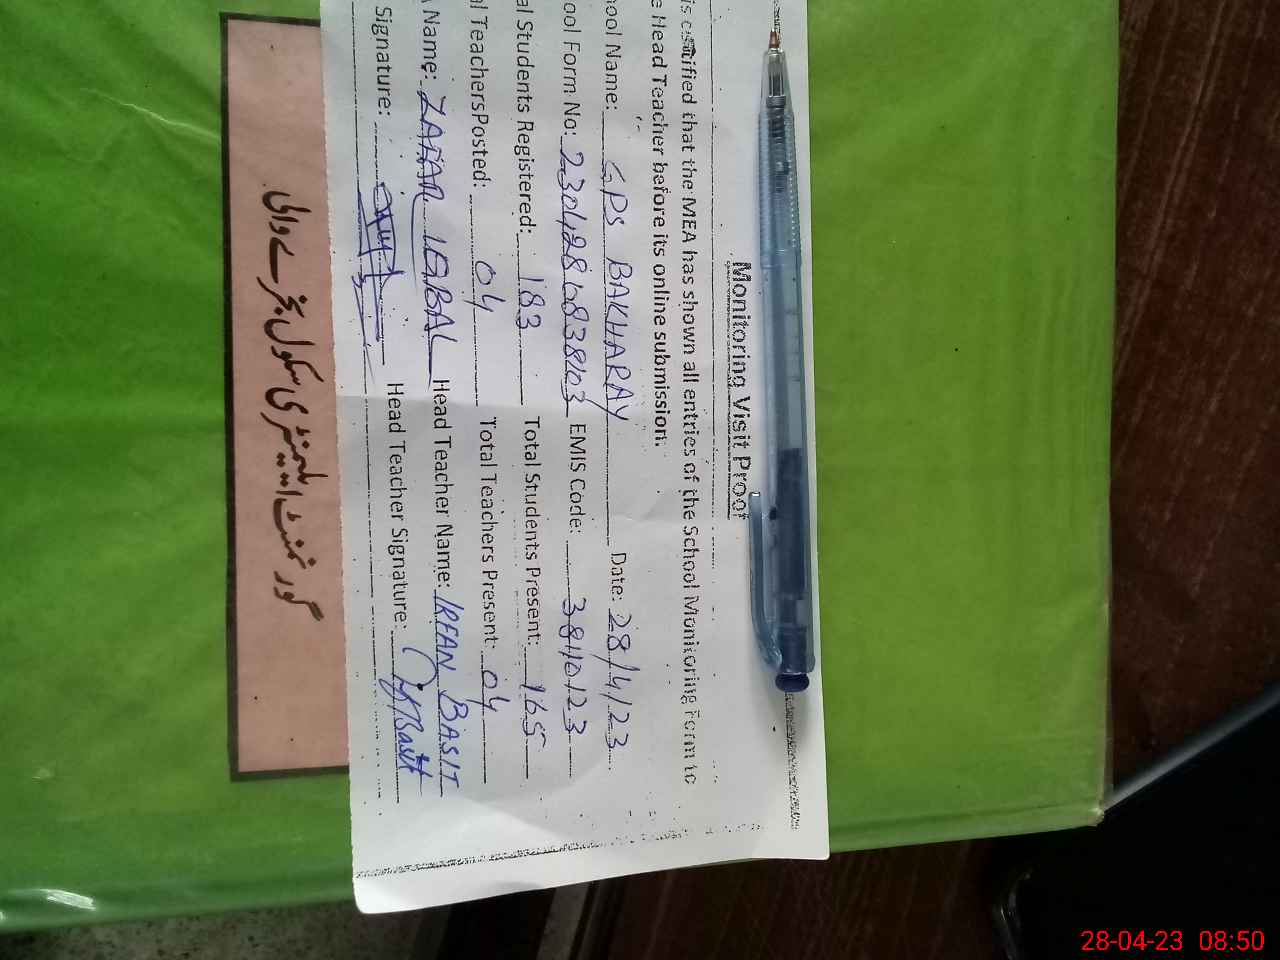 Monitoring Visit Proof
is certified that the MEA has shown all entries of the School Monitoring Form to
e Head Teacher before its online submission.
hool Name: GPS BAKHARAY Date: 28/4/23
ool Form No: EMIS Code: 38110123
al Students Registered: 183 Total Students Present: 165
al TeachersPosted: 04 Total Teachers Present: 04
A Name: ZAFAR IQBAL Head Teacher Name: IRFAN BASIT
Signature: Head Teacher Signature:
گورنمنٹ ایلیمنٹری سکول بخرے والی
28-04-23 08:50